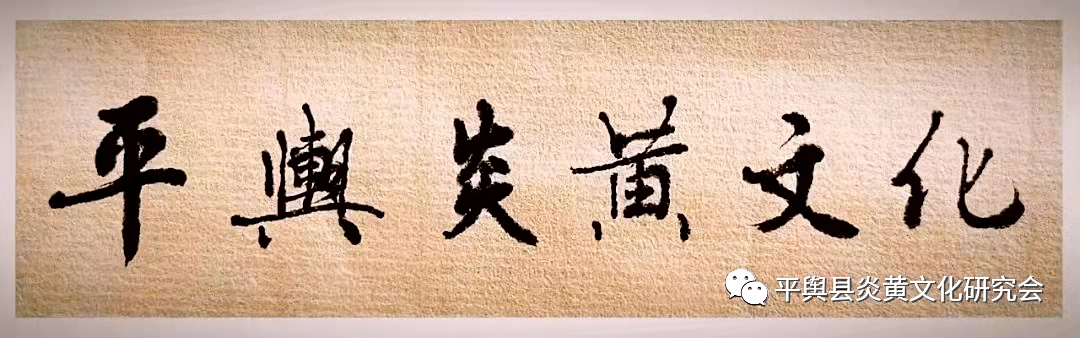 平輿炎黄文化
平舆县炎黄文化研究会